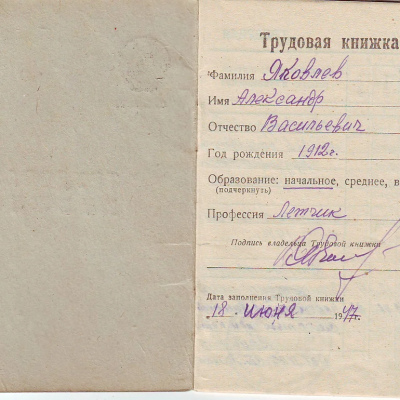 Трудовая книжка
Фамилия Яковлев
Имя Александр
Отчество Васильевич
Год рождения 1912 г.
Образование: начальное, среднее, в
(подчеркнуть)
Профессия Летчик
Подпись владельца Трудовой книжки
Дата заполнения Трудовой книжки
18. июня 1947 г.